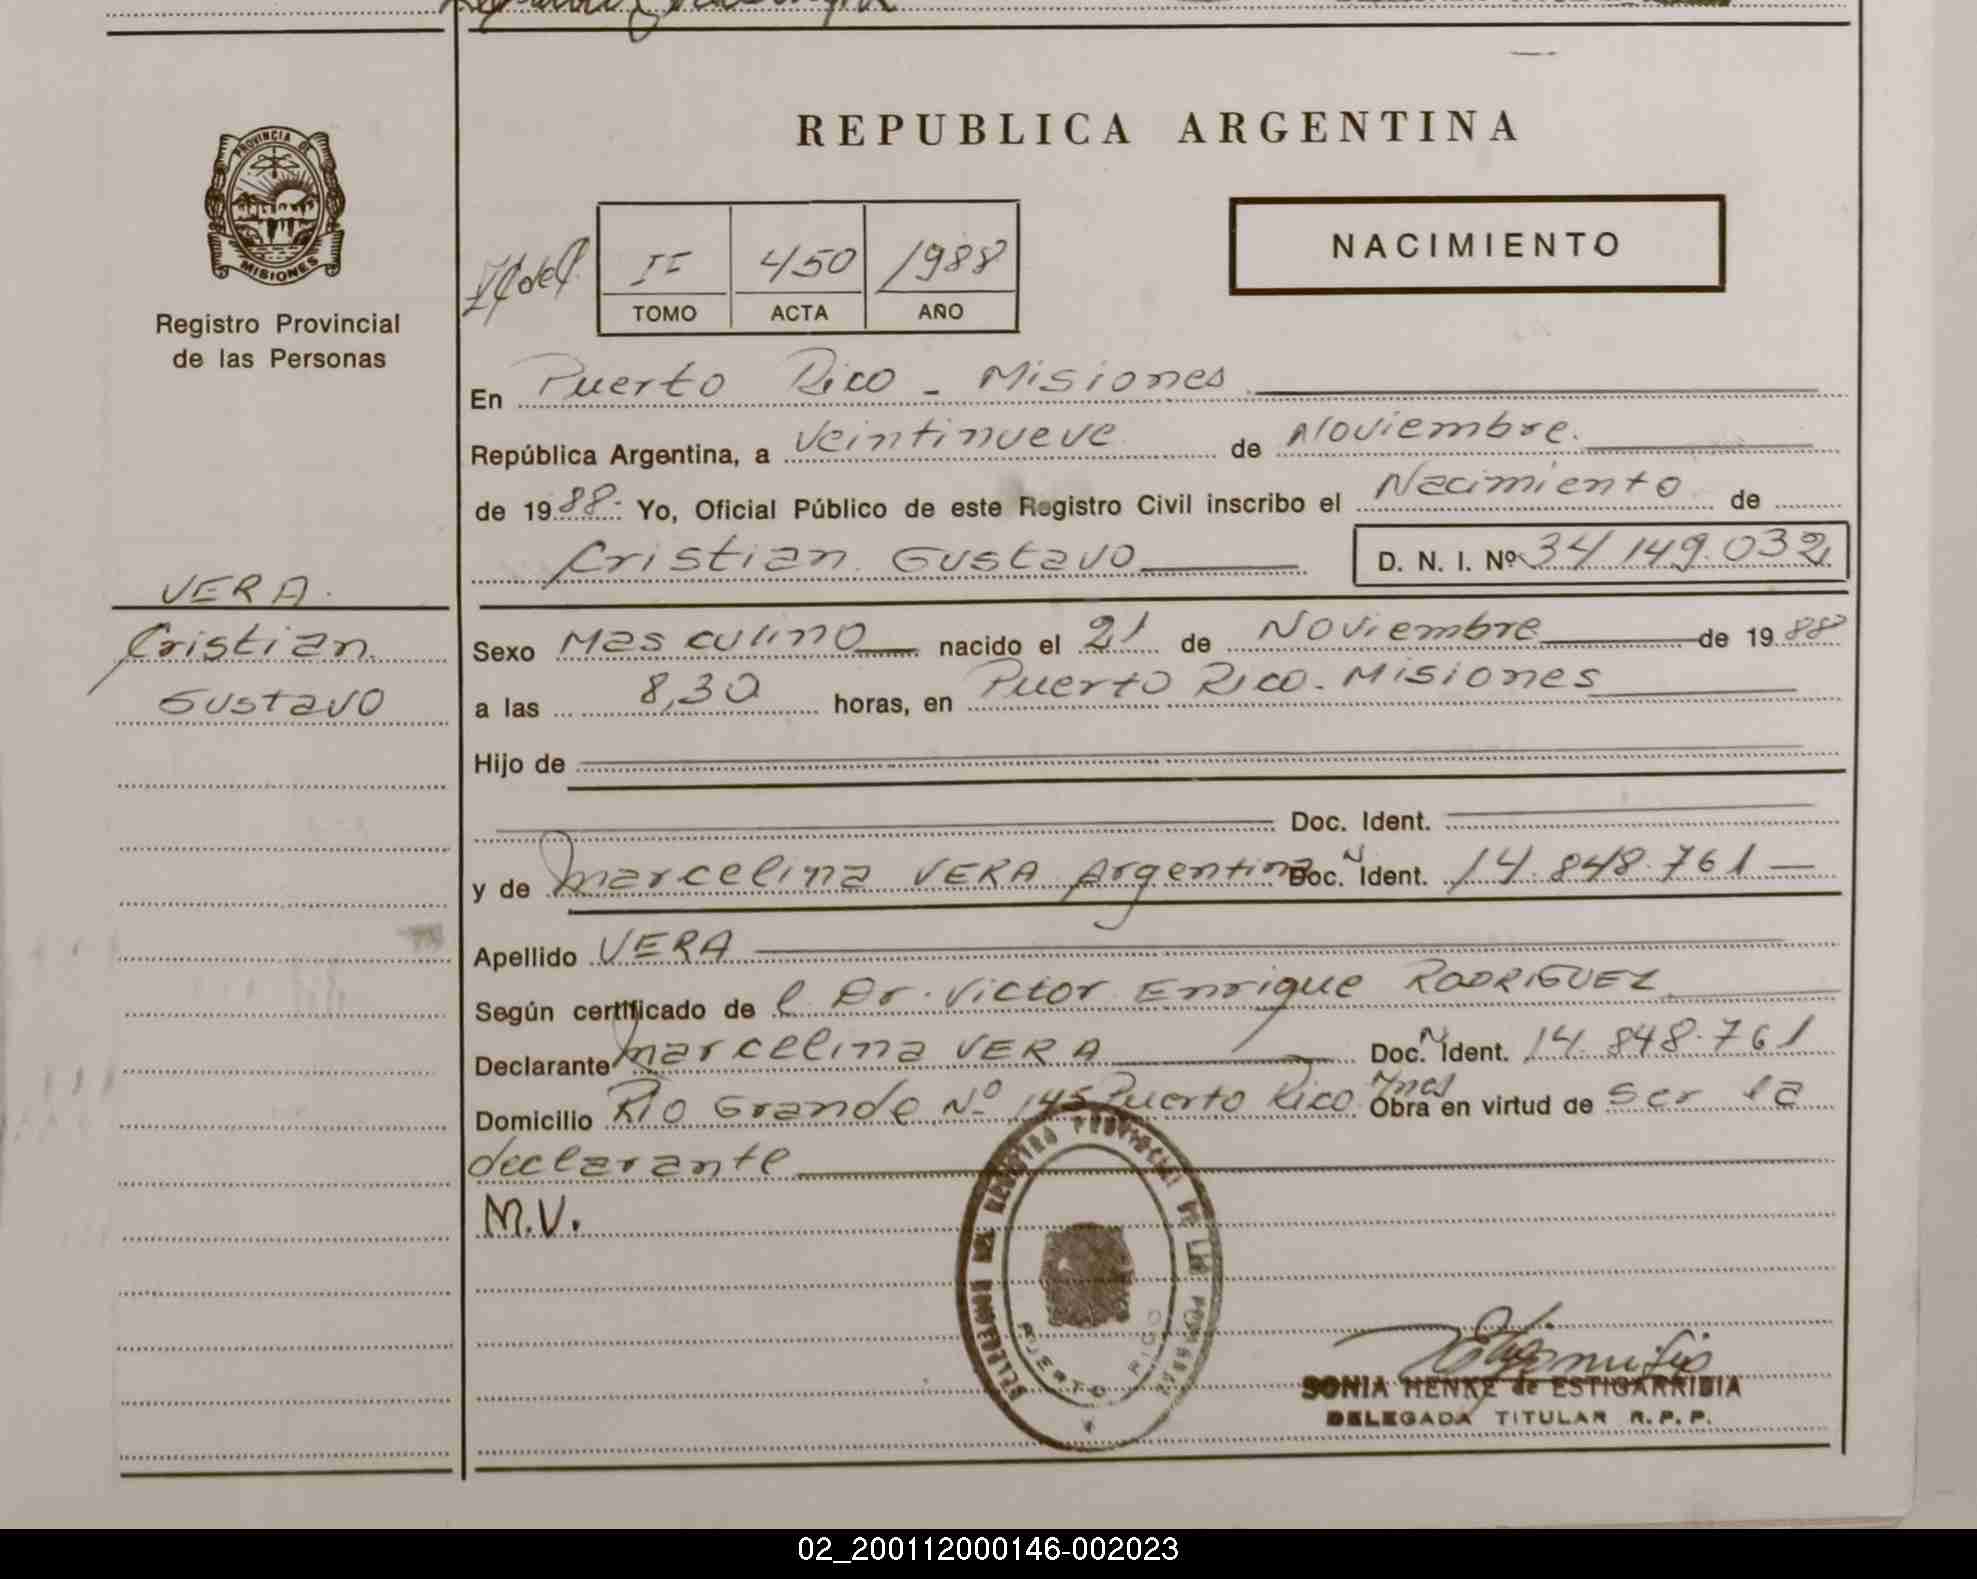 REPUBLICA ARGENTINA
PROVINCIA DE
MISIONES
Registro Provincial
de las Personas
NACIMIENTO
II 450 1988
TOMO ACTA AÑO
En Puerto Rico - Misiones
República Argentina, a veintinueve de Noviembre.
de 1988- Yo, Oficial Público de este Registro Civil inscribo el Nacimiento de
Cristian Gustavo D. N. I. Nº 34 149.032
VERA.
Cristian
Gustavo
Sexo Masculino nacido el 21 de Noviembre de 1988
a las 8,30 horas, en Puerto Rico - Misiones
Hijo de
Doc. Ident.
y de Marcelina VERA Argentina Doc. Ident. 14.848.761
Apellido VERA
Según certificado de l Dr. Victor Enrique RODRIGUEZ
Declarante Marcelina VERA Doc. Ident. 14.848.761
Domicilio Rio Grande Nº 145 Puerto Rico Mnes Obra en virtud de ser la
declarante
M.V.
DELEGACION DEL REGISTRO PROVINCIAL DE LAS PERSONAS
PUERTO RICO
SONIA HENKE de ESTIGARRIBIA
DELEGADA TITULAR R.P.P.
02_200112000146-002023